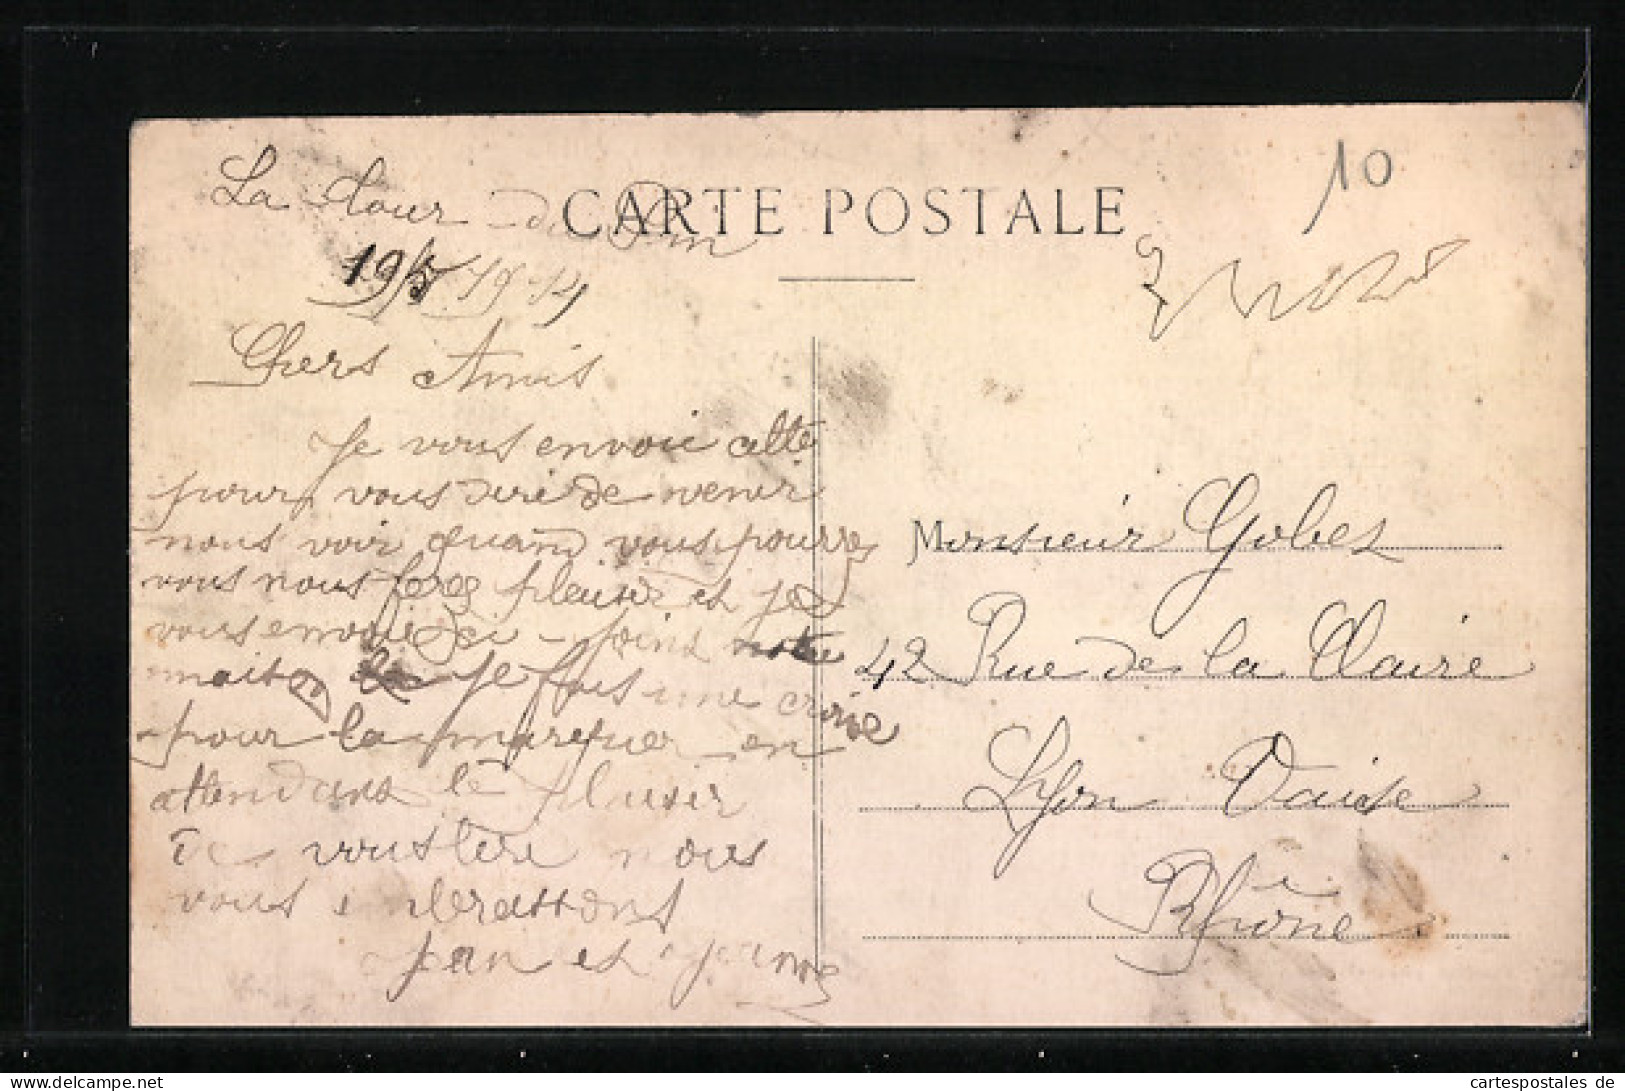 CARTE POSTALE
10
La tour du Pin
19/5 1914
Chers Amis
Je vous envoie cette
pour vous dire de venir
nous voir quand vous pourrez
vous nous ferez plaisir et je
vous envoie ci-joint notre
maison je fais une croix
pour la marquer en
attendant le plaisir
de vous lire nous
vous embrassons
Jean et Jeanne
Monsieur Gobet
42 Rue de la Claire
Lyon Vaise
Rhône
cartespostales de